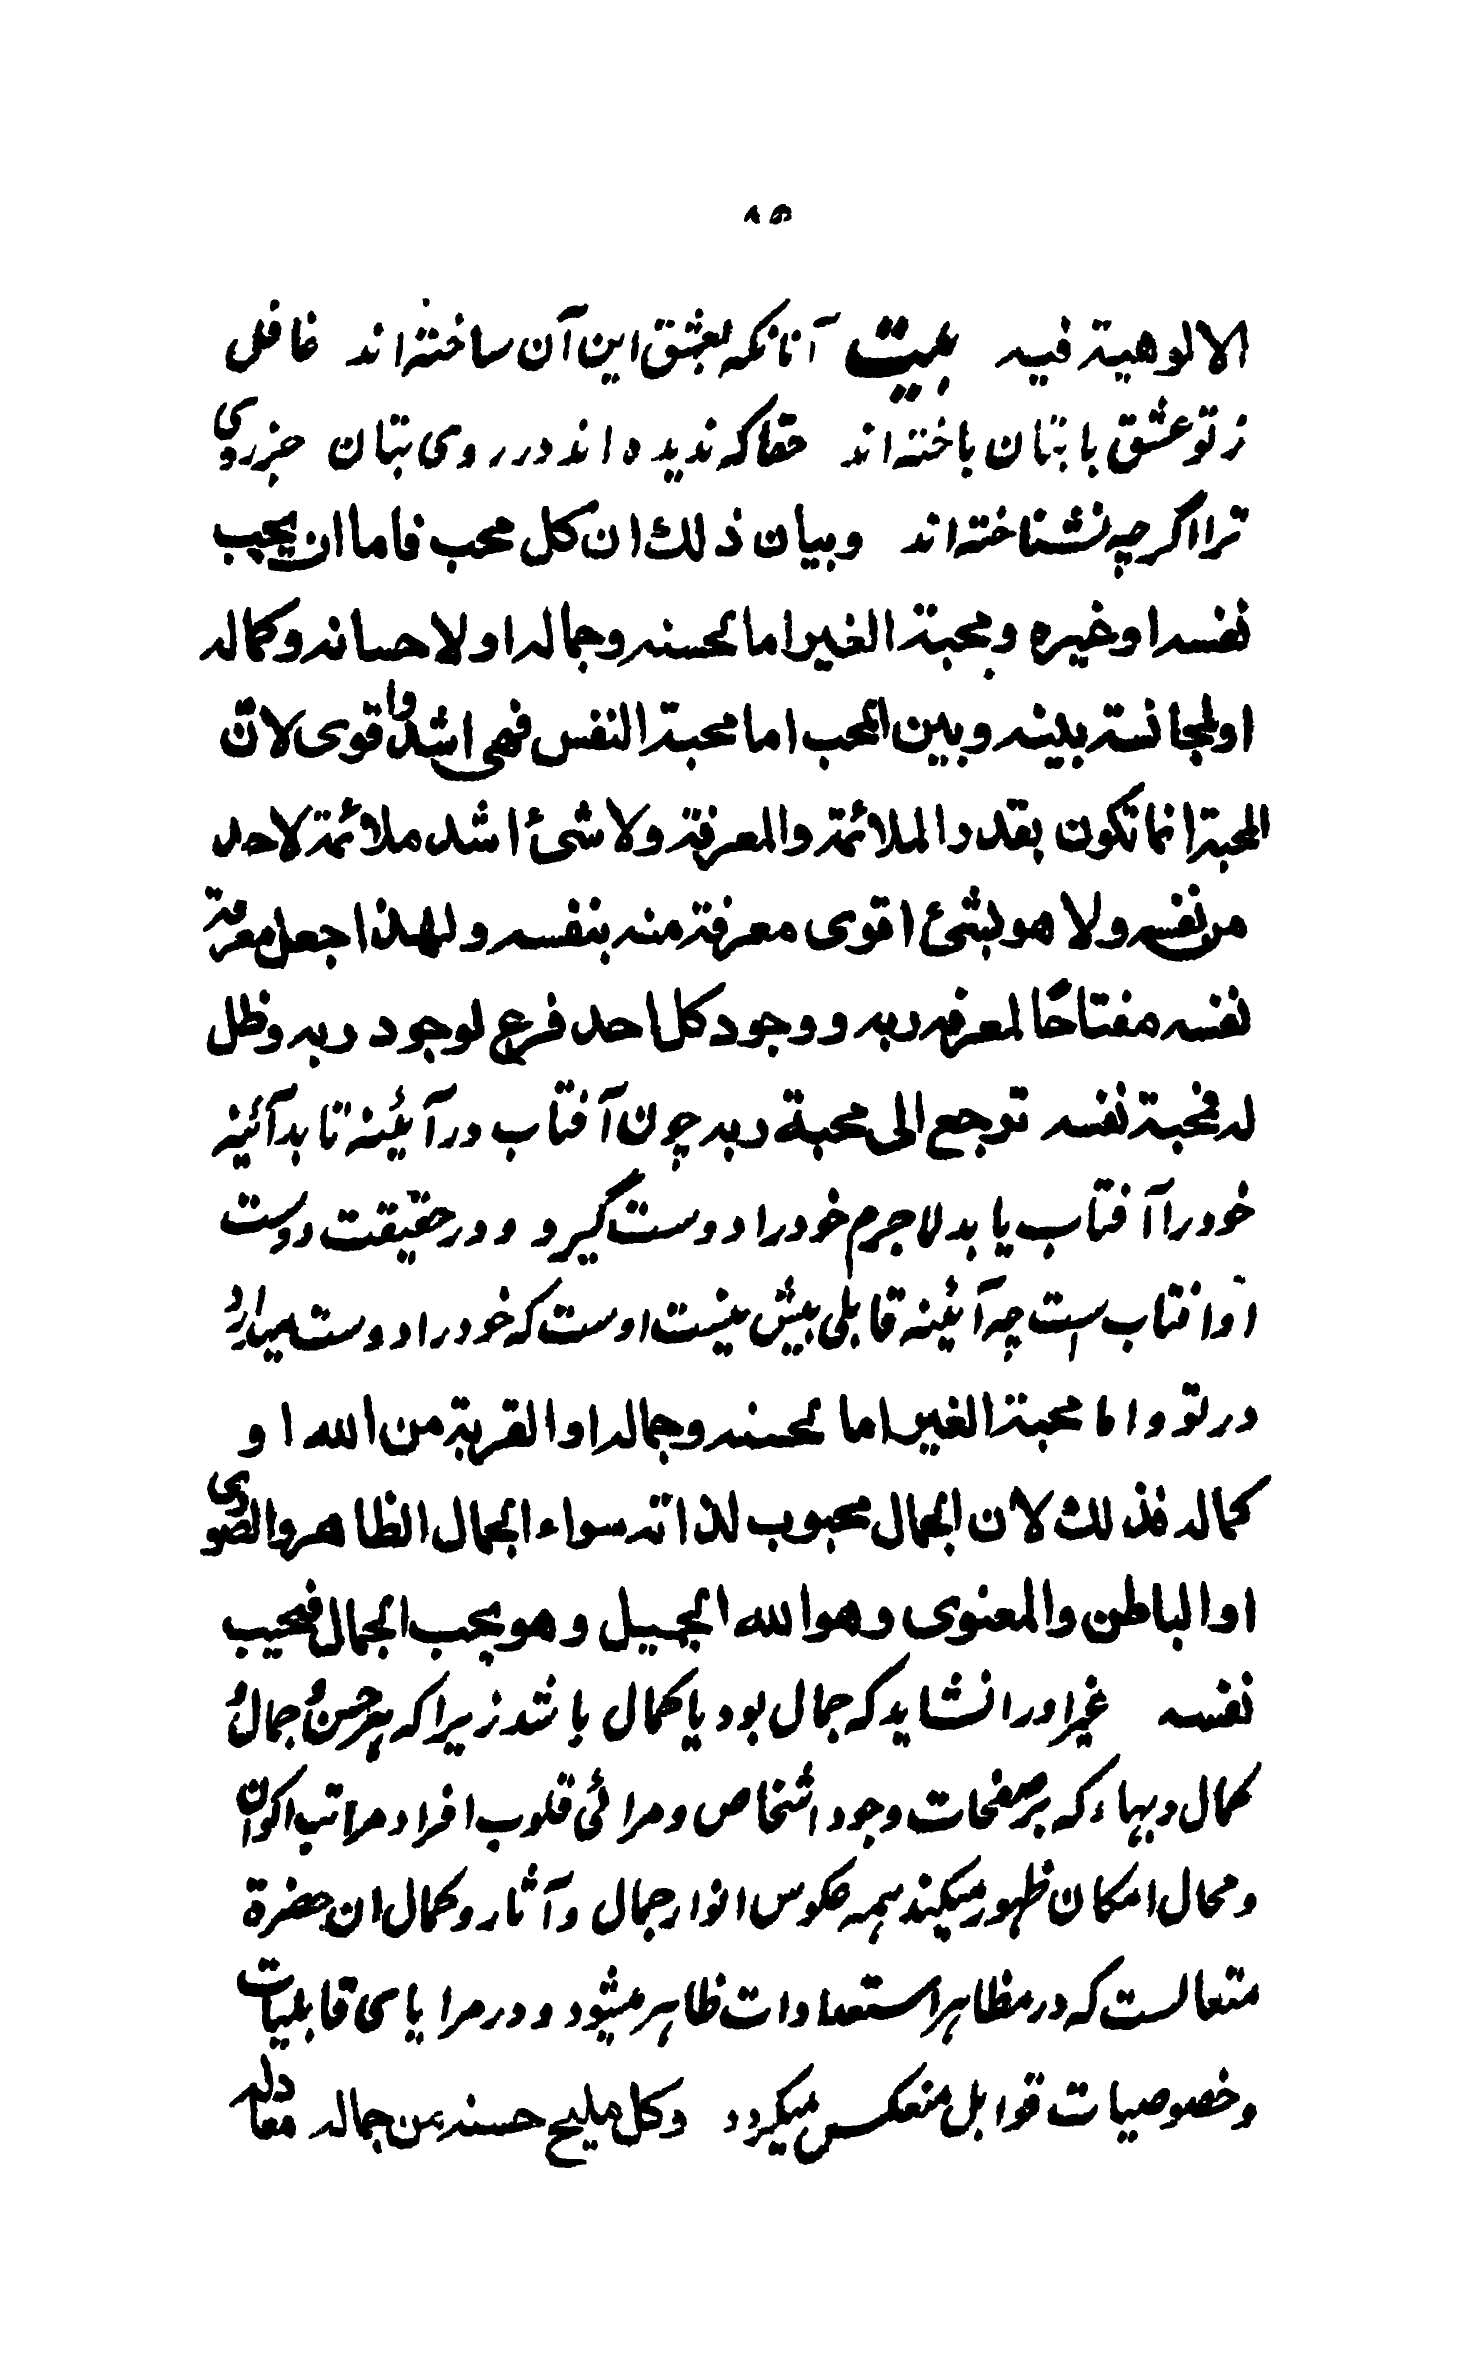 ٨٥
الالوهية فيه بيت آنانكه بعشق اين آن ساخته اند غافل
ز تو عشق با بتان باخته اند حقا كه نديده اند در روى بتان جز روى
ترا اگرچه نشناخته اند وبيان ذلك ان كل محب فاما ان يحب
نفسه او غيره ومحبة الغير اما لحسنه وجماله او لاحسانه وكماله
او لمجانسة بينه وبين المحب اما محبة النفس فهى اشد واقوى لانّ
المحبة انما تكون بقدر الملائمة والمعرفة ولا شئ اشد ملائمة لاحد
من نفسه ولا هو بشئ اقوى معرفة منه بنفسه ولهذا جعل معرفة
نفسه مفتاحًا لمعرفه ربه ووجود كل احد فرع لوجود ربه وظل
له فمحبة نفسه ترجع الى محبة ربه چون آفتاب در آئينه تابد آئينه
خود را آفتاب يابد لاجرم خود را دوست گيرو و در حقيقت دوست
او افتاب است چه آئينه قابلى بيش نيست اوست كه خود را دوست ميدارد
در تو و اما محبة الغير اما لحسنه وجماله او القربة من الله او
كماله فذلك لان الجمال محبوب لذاته سواء الجمال الظاهر والصورى
او الباطن والمعنوى وهو الله الجميل وهو يحب الجمال فيحب
نفسه غير او را نشايد كه جمال بود يا كمال باشد زيرا كه هر حسنُ و جمالُ و
كمال و بهاء كه بر صفحات وجود اشخاص و مرائى قلوب افراد مراتب اكوان
و محال امكان ظهور ميكند همه عكوس انوار جمال و آثار و كمال ان حضرة
متعالست كه در مظاهر استعدادات ظاهر ميشود و در مراياى قابليات
و خصوصيات قوابل منعكس ميگردد وكل مليح حسنه من جماله معار له